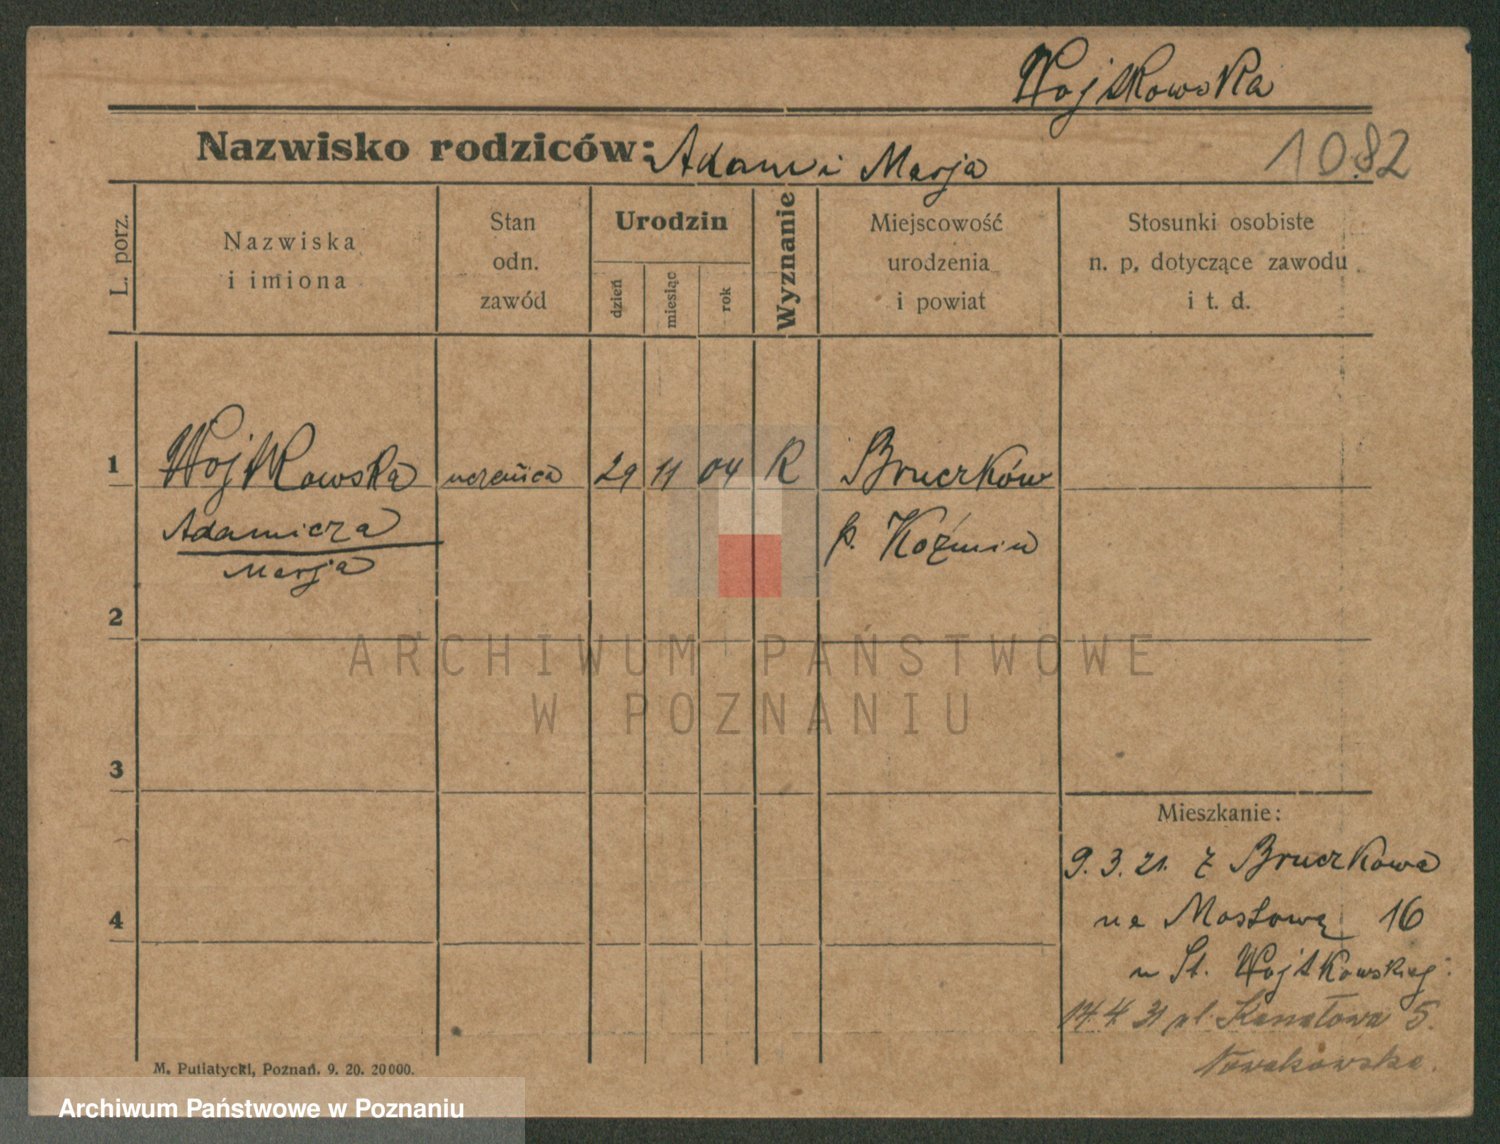 Wojtkowska
Nazwisko rodziców: Adam i Marja
1082
L. porz.
Nazwiska
i imiona
Stan
odn.
zawód
Urodzin
dzień
miesiąc
rok
Wyznanie
Miejscowość
urodzenia
i powiat
Stosunki osobiste
n. p, dotyczące zawodu
i t. d.
1 Wojtkowska uczenica 29 11 04 R Bruczków
Adamicza p. Koźmin
Marja
2
3
4
ARCHIWUM PAŃSTWOWE
W POZNANIU
Mieszkanie:
9.3.21. z Bruczkowa
na Mostową 16
u St. Wojtkowskiej
14.4 31 ul. Kanałowa 5.
Nowakowska.
M. Putiatycki, Poznań. 9. 20. 20000.
Archiwum Państwowe w Poznaniu